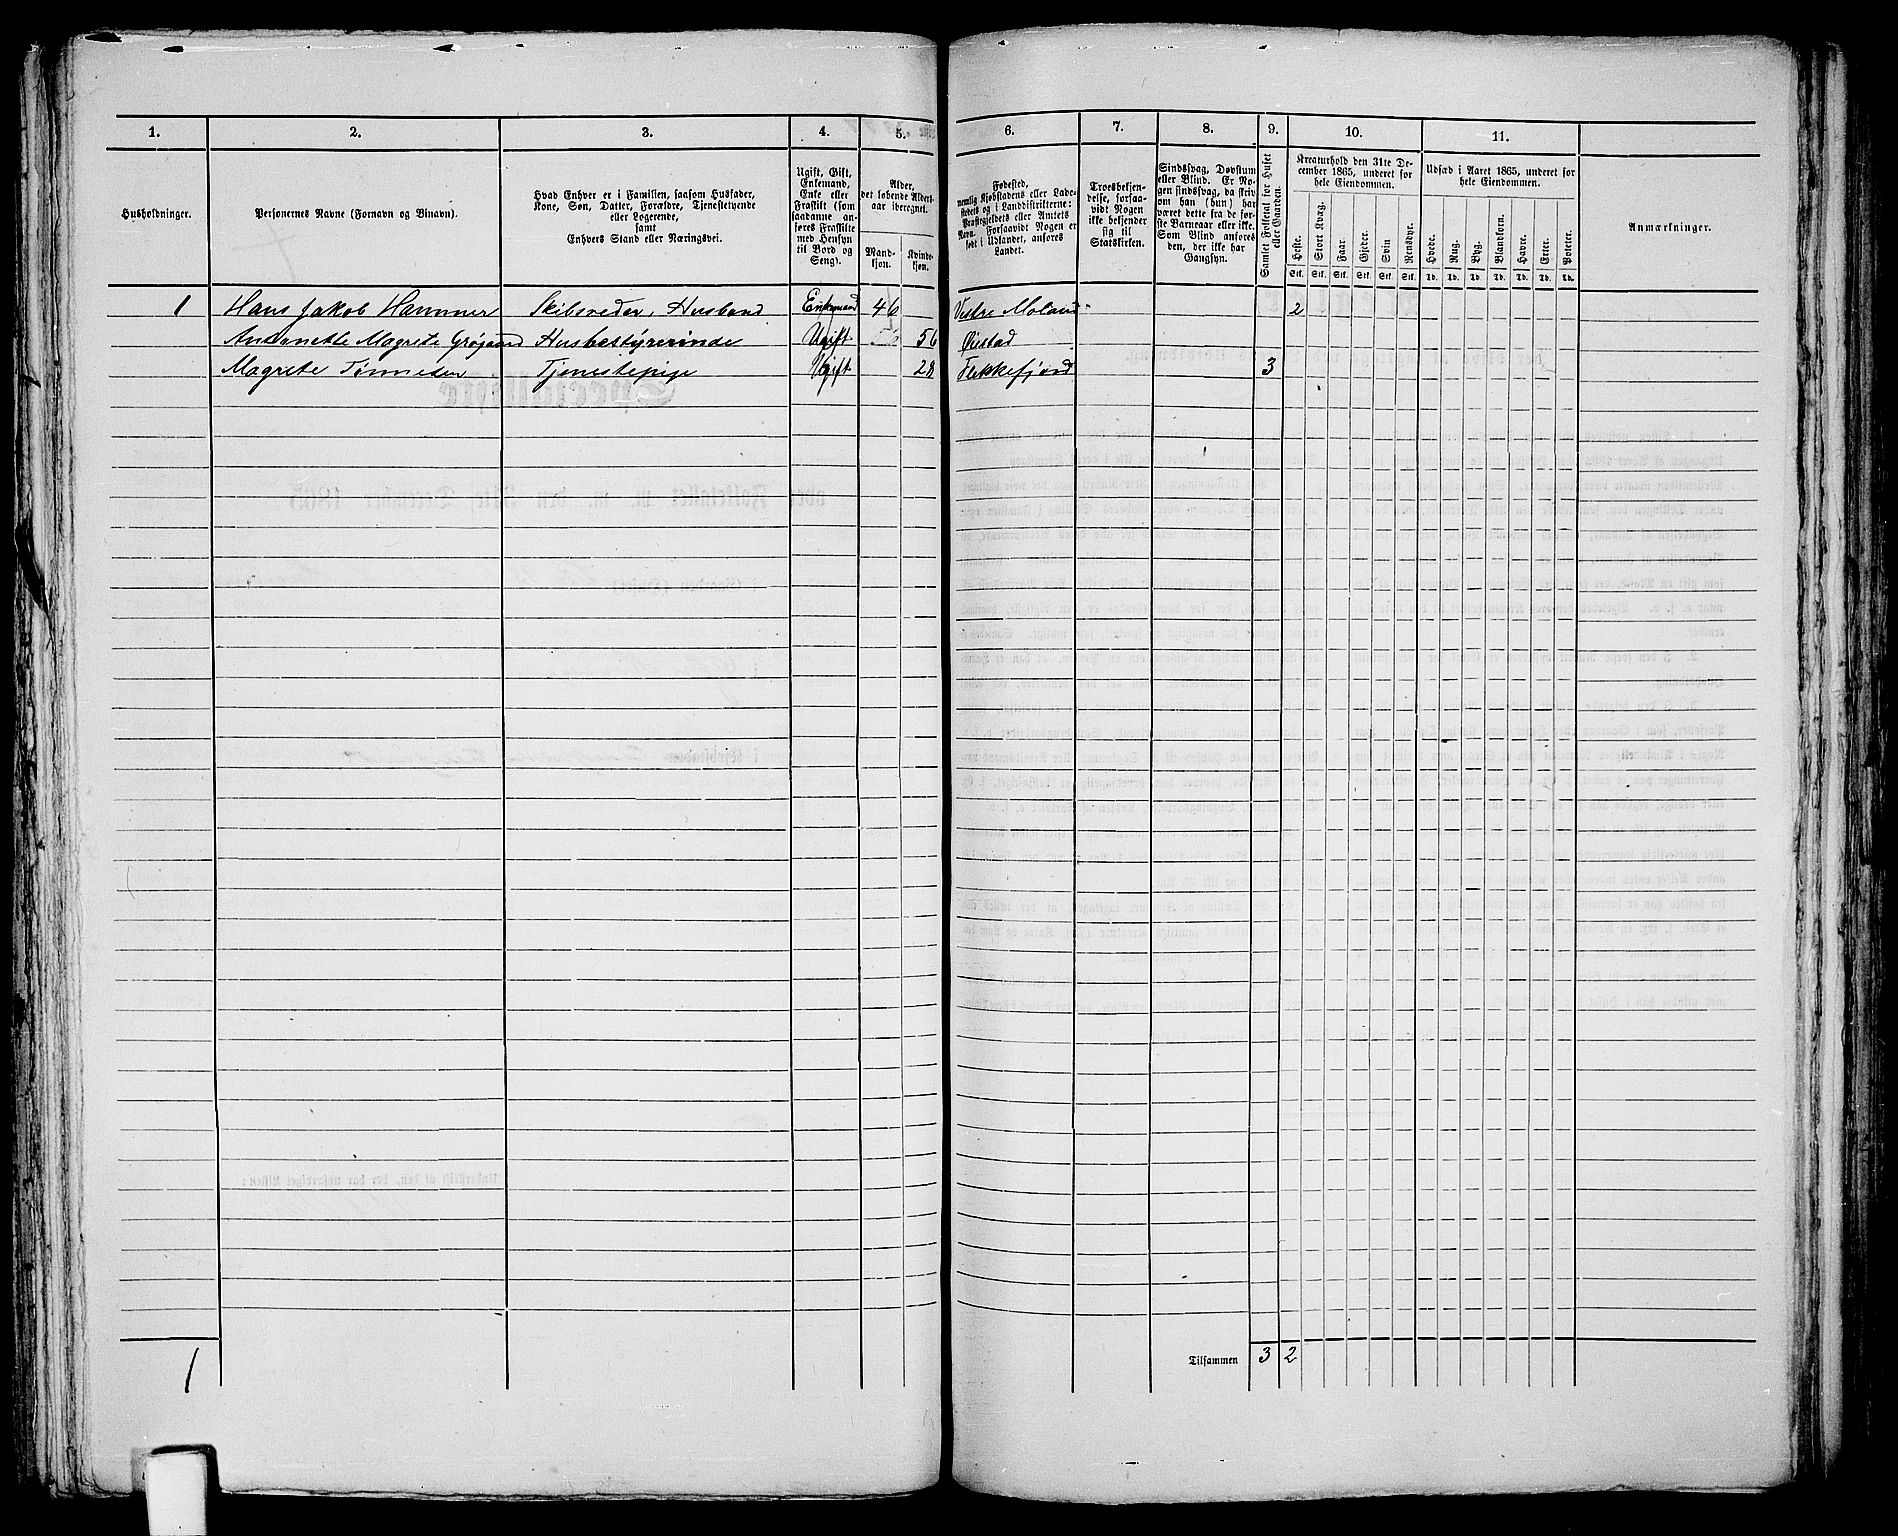 1. 2. 3. 4. 5. 6. 7. 8. 9. 10. 11.
Husholdninger.
Personernes Navne (Fornavn og Binavn).
Hvad Enhver er i Familien, saasom Husfader,
Kone, Søn, Datter, Forældre, Tjenestetyende
eller Logerende,
samt
Enhvers Stand eller Næringsvei.
Ugift, Gift,
Enkemand,
Enke eller
Fraskilt (som
saadanne an-
føres Fraskilte
med Hensyn
til Bord og
Seng).
Alder,
det løbende Alders-
aar iberegnet.
Mand-
kjøn.
Kvinde-
kjøn.
Fødested,
nemlig Kjøbstadens eller Lade-
stedets og i Landdistrikterne:
Præstegjeldets eller Amtets
Navn. Forsaavidt Nogen er
født i Udlandet, anføres
Landet.
Troesbekjen-
delse, forsaa-
vidt Nogen
ikke bekjender
sig til
Statskirken.
Sindssvag, Døvstum
eller Blind. Er No-
gen sindssvag, da skriv
om han (hun) har
været dette fra de før-
ste Barneaar eller ikke.
Som Blind anføres
den, der ikke har
Gangsyn.
Samlet Folketal for Huset
eller Gaarden.
Kreaturhold den 31te De-
cember 1865, underet for
hele Eiendommen.
Heste. Stort Kvæg. Faar. Gjeder. Svin Rensdyr.
Stk. Stk. Stk. Stk. Stk. Stk.
Udsæd i Aaret 1865, underet for
hele Eiendommen.
Hvede. Rug. Byg. Blandkorn. Havre. Erter. Poteter.
Td. Td. Td. Td. Td. Td. Td.
Anmærkninger.
1 Hans Jakob Hammer Skibsreder, Husbond Enkemand 46 Vestre Moland 2
Antonette Magrete Ugift 56 Øiestad
Husbestyrerinde
Magrete Tønnesen Tjenestepige Ugift 28 Flekkefjord 3
1 Tilsammen 3 2